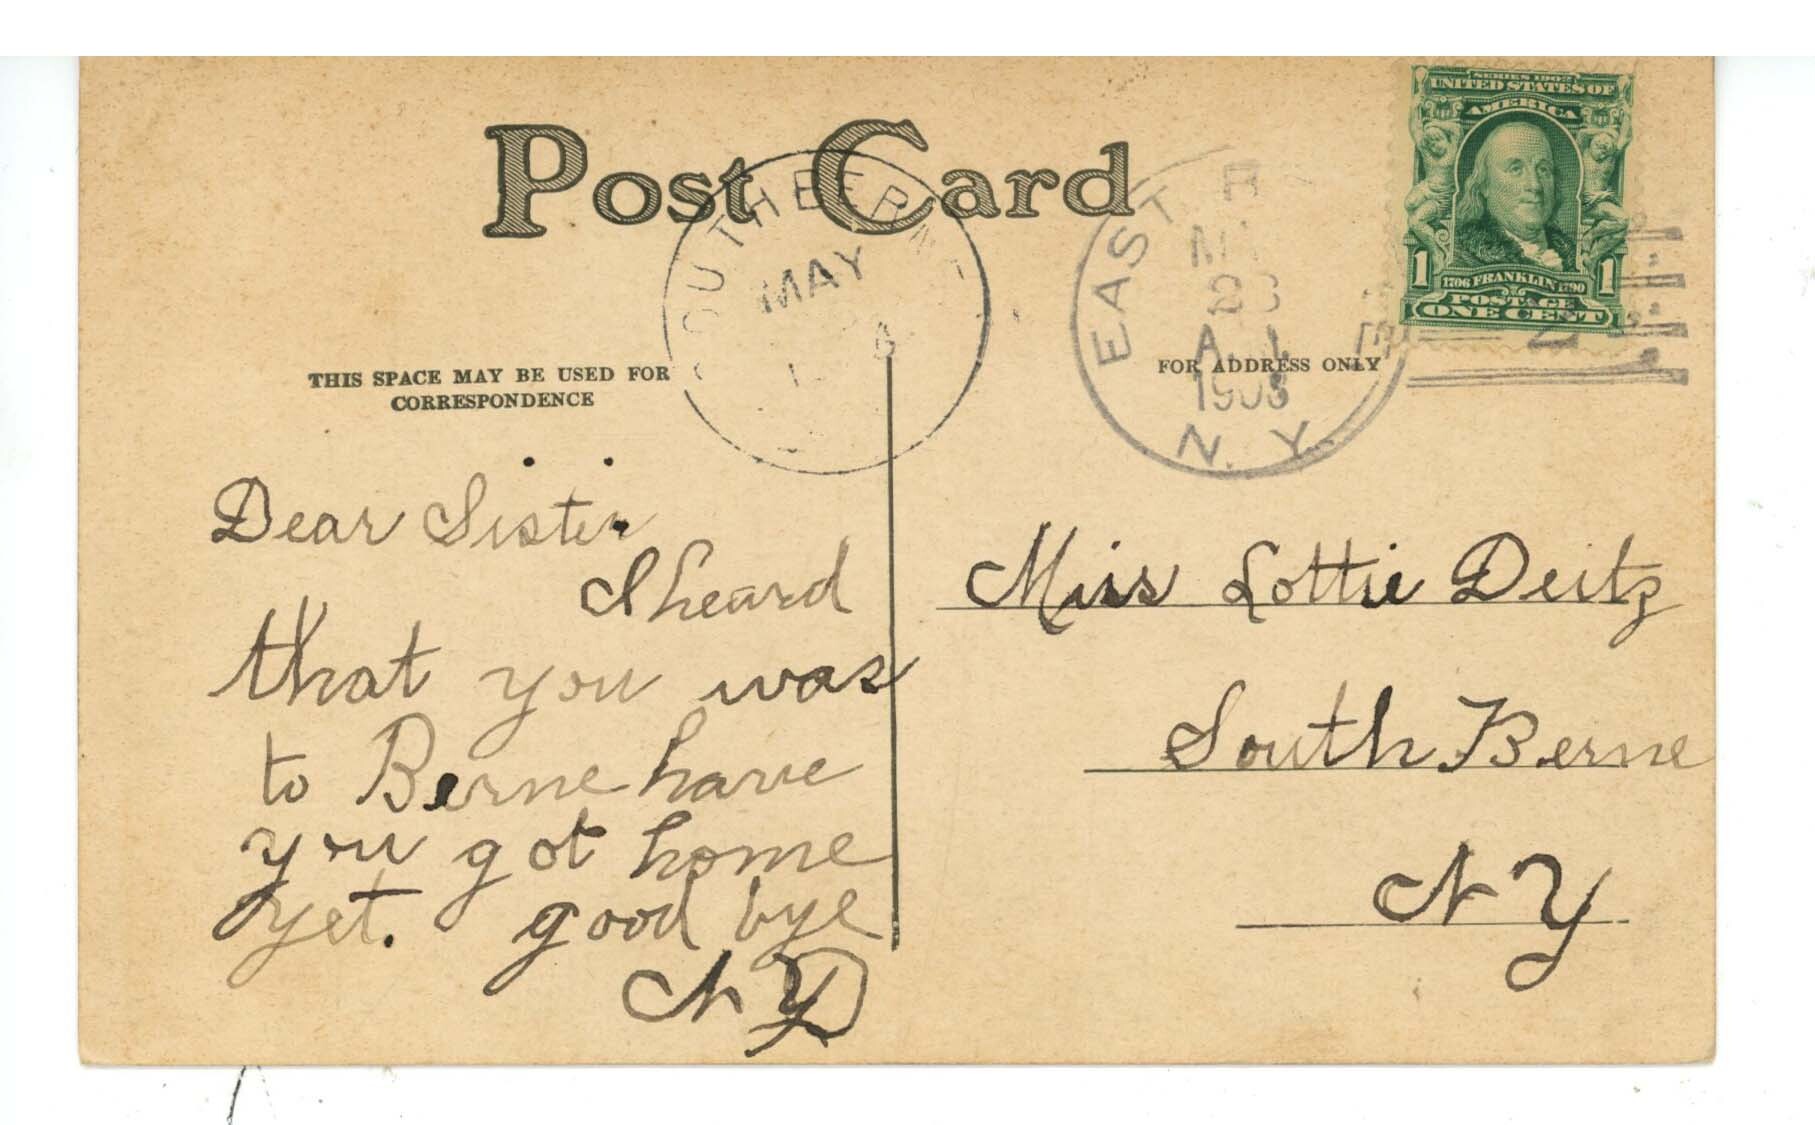 Post Card
SERIES 1902
UNITED STATES OF
AMERICA
1 1
1706 FRANKLIN 1790
POSTAGE
ONE CENT
SOUTH BERNE
MAY
EAST
A.M.
1908
N.Y.
THIS SPACE MAY BE USED FOR
CORRESPONDENCE
FOR ADDRESS ONLY
Dear Sister
I heard
that you was
to Berne have
you got home
yet. good bye
N
Miss Lottie Deitz
South Berne
N Y